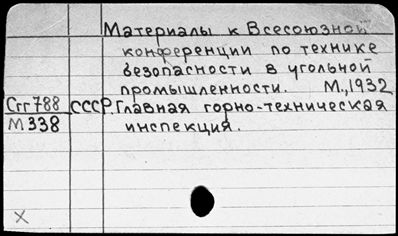 Материалы к Всесоюзной
конференции по технике
безопасности в угольной
промышленности. М., 1932
Сгг 788 СССР. Главная горно-техническая
М 338 инспекция.
X